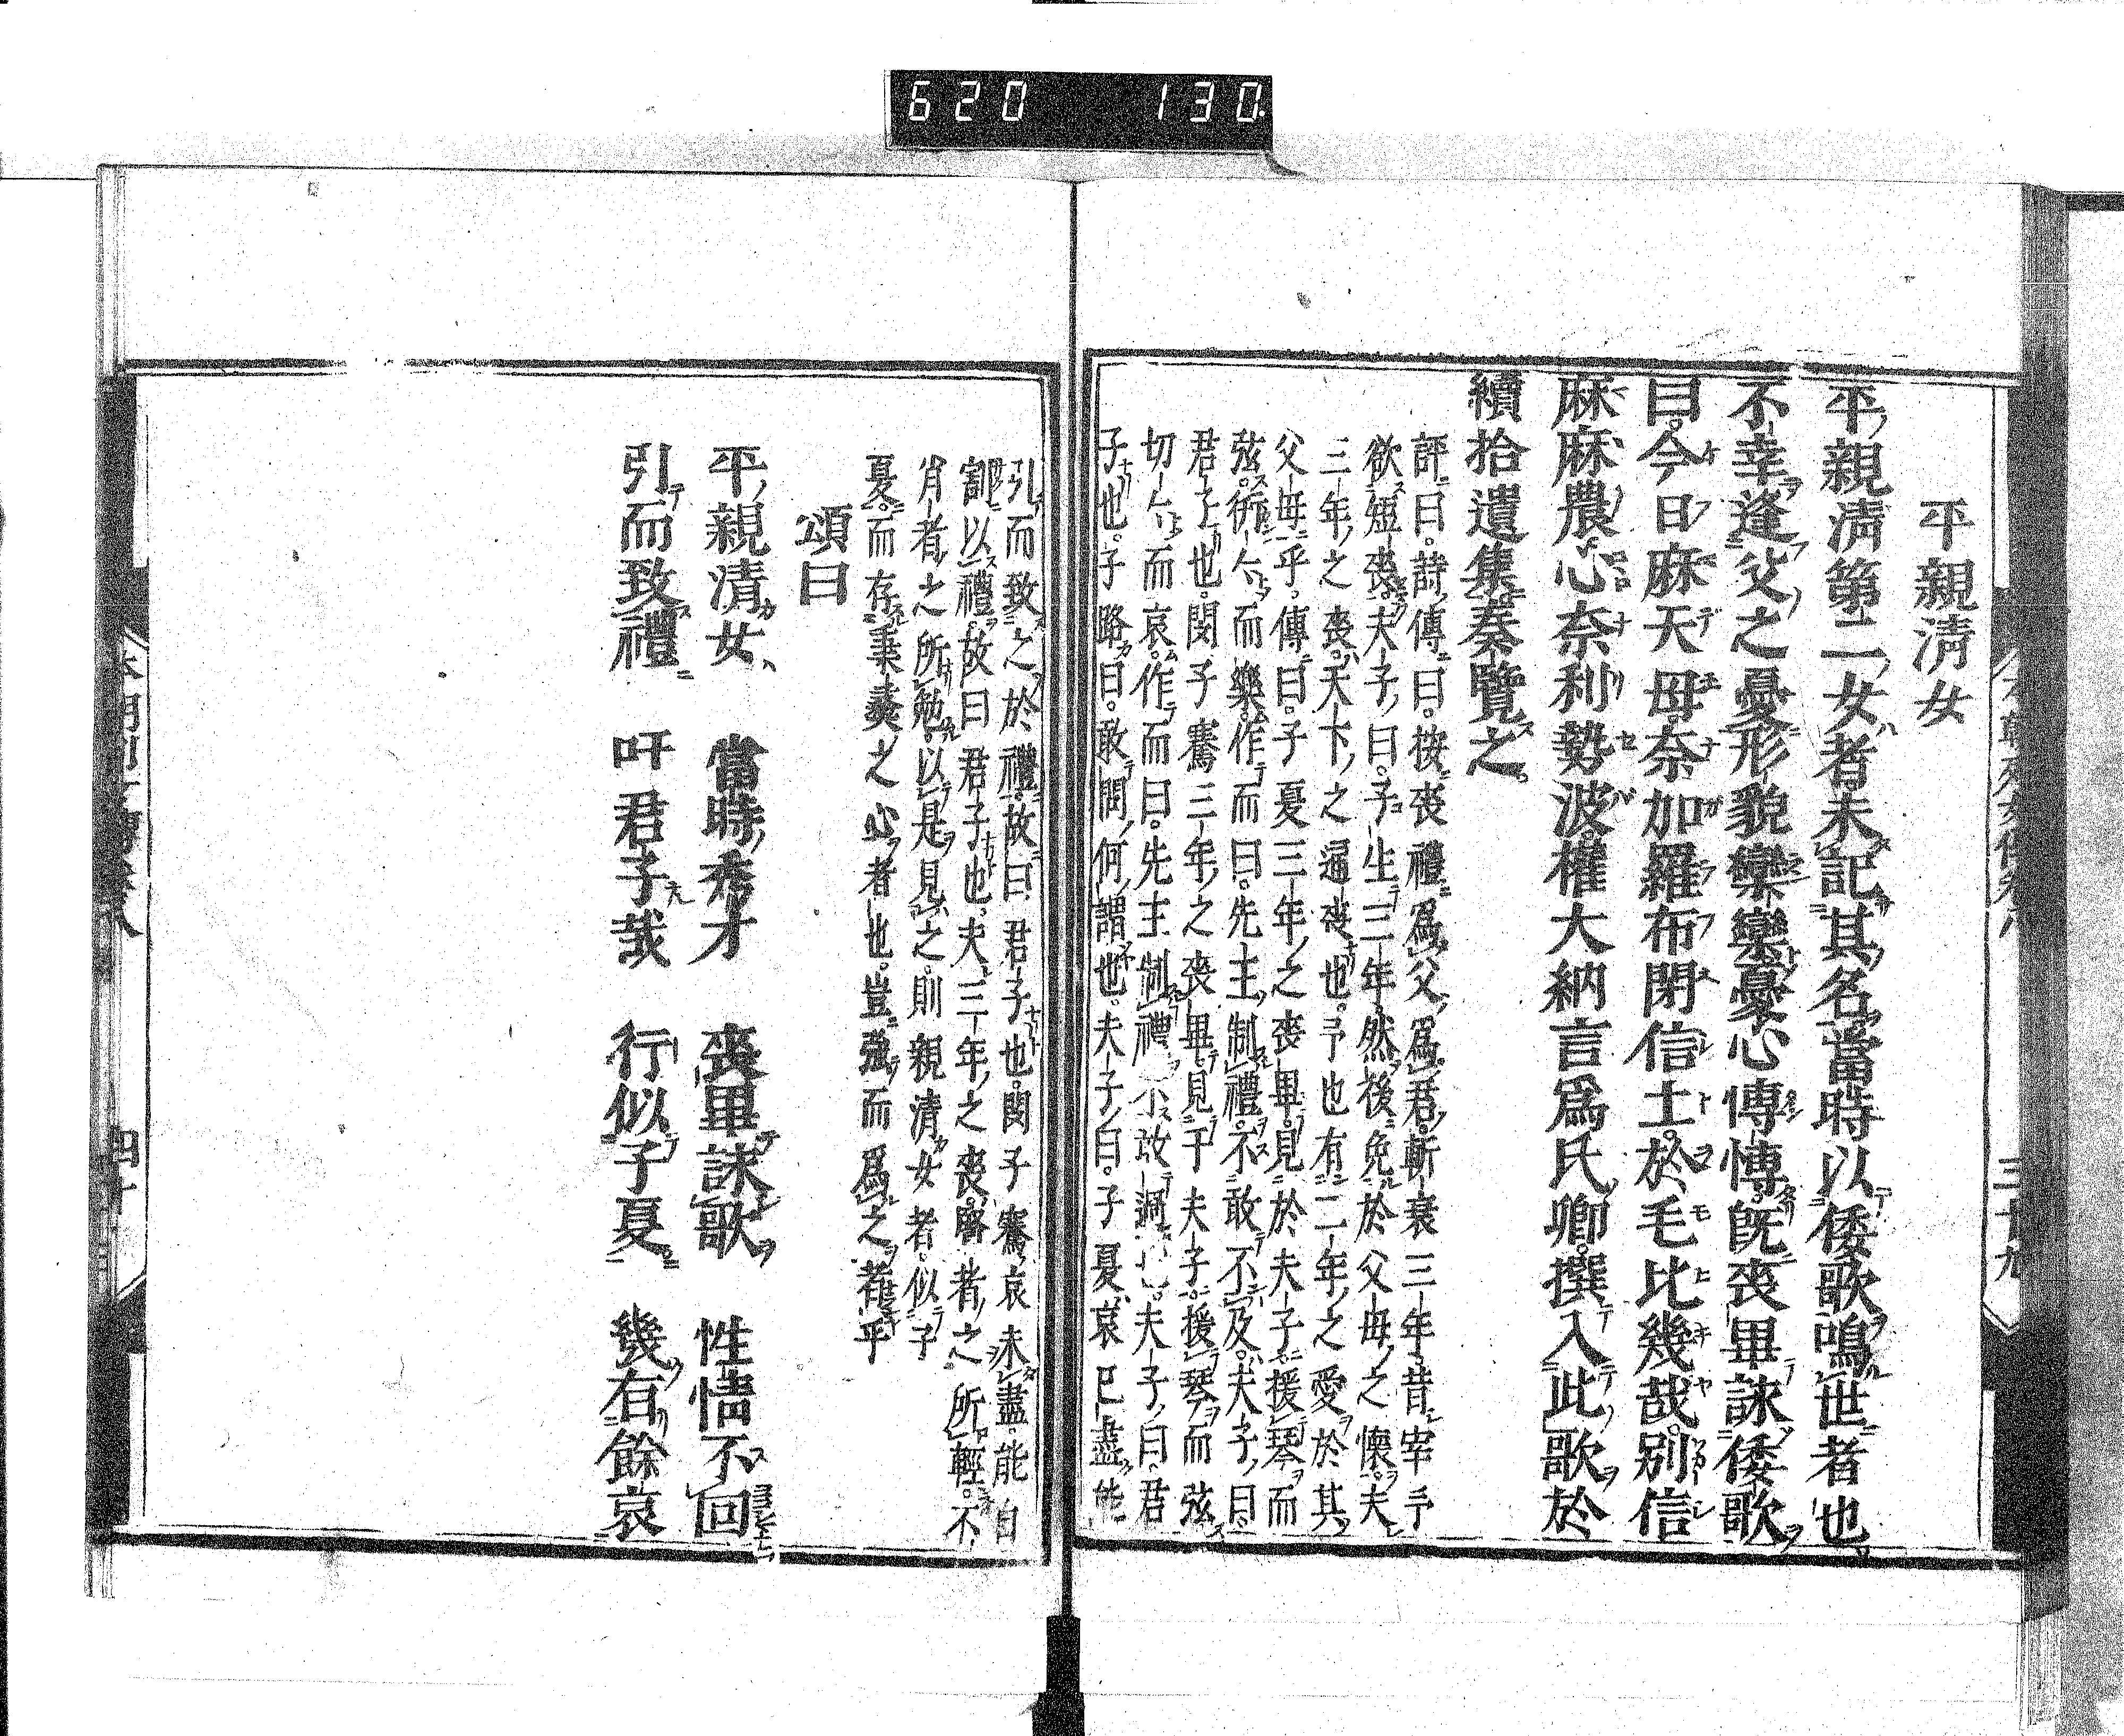 620 130.
平親淸女
平親淸第二女者未記其名當時以倭歌鳴世者也。
不幸逢父之憂形貌欒欒憂心愽愽。旣喪畢詠倭歌
曰。今日麻天毋奈加羅布閉信土。於毛比幾哉。別信
麻麻農心奈利勢波。權大納言爲氏卿。撰入此歌於
續拾遺集奏覽之。
評曰。詩傳曰。按喪禮爲父爲君。斬衰三年。昔宰予
欲短喪。夫子曰。子生三年。然後免於父母之懷。夫
三年之喪。天下之通喪也。予也有三年之愛於其
父母乎。傳曰。子夏三年之喪畢。見於夫子。援琴而
弦。衎衎而樂。作而曰。先王制禮。不敢不及。夫子曰。
君子也。閔子騫三年之喪畢。見于夫子。援琴而弦
切切而哀。作而曰。先王制禮。不敢過也。夫子曰。君
子也。子路曰。敢問何謂也。夫子曰。子夏哀已盡。能
引而致之於禮。故曰君子也。閔子騫哀未盡。能自
割以禮。故曰君子也。夫三年之喪。賢者之所輕。不
肖者之所勉。以是見之。則親清女者。似子
夏。而存秉彝之心者也。豈強而爲之者乎
頌曰
平親清女 當時秀才 喪畢詠歌 性情不回
引而致禮 吁君子哉 行似子夏 幾有餘哀
本朝列女傳卷八 三十九
本朝列女傳卷八 四十